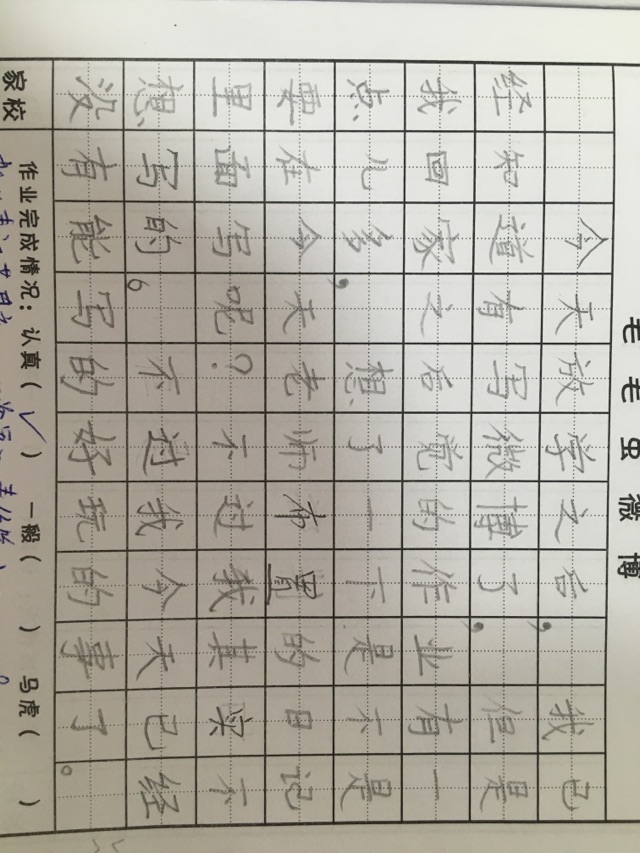 毛毛虫微博
今天放学之后，我已
经知道有写微博了，但是
我回家之后觉的作业有一
点儿多，想了一下是不是
要在今天老师布置的日记
里面写呢？不过我其实不
想写的。不过我今天已经
没有能写的好玩的事了。
家校 作业完成情况：认真（✓） 一般（ ） 马虎（ ）